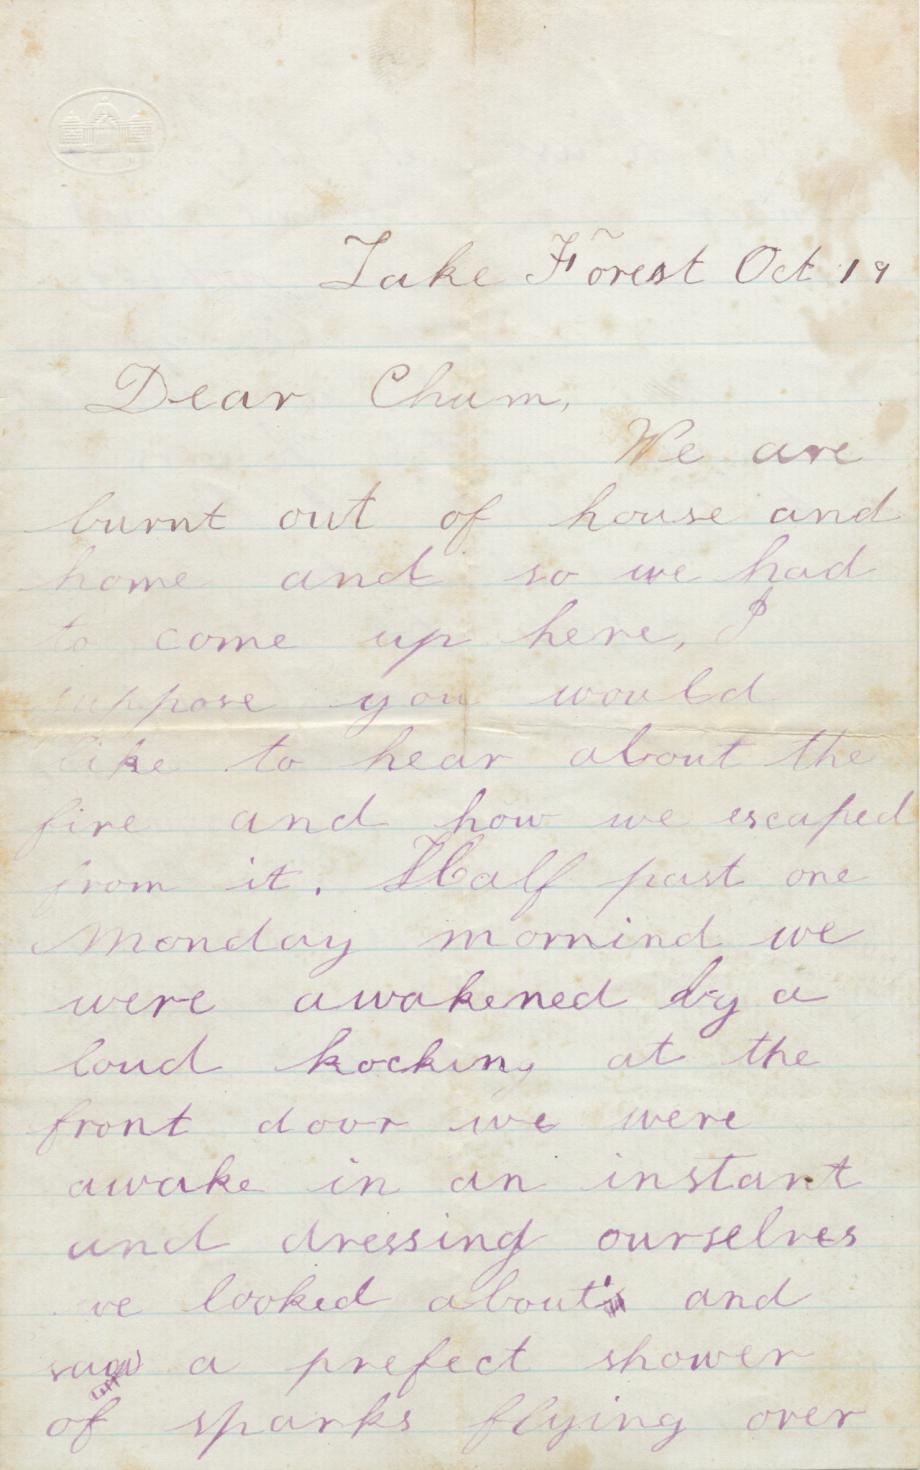 Lake Forest Oct 19
Dear Chum,
We are
burnt out of house and
home and so we had
to come up here, I
suppose you would
like to hear about the
fire and how we escaped
from it. Half past one
Monday mornind we
were awakened by a
loud kocking at the
front door we were
awake in an instant
and dressing ourselves
we looked about and
saw a prefect shower
of sparks flying over